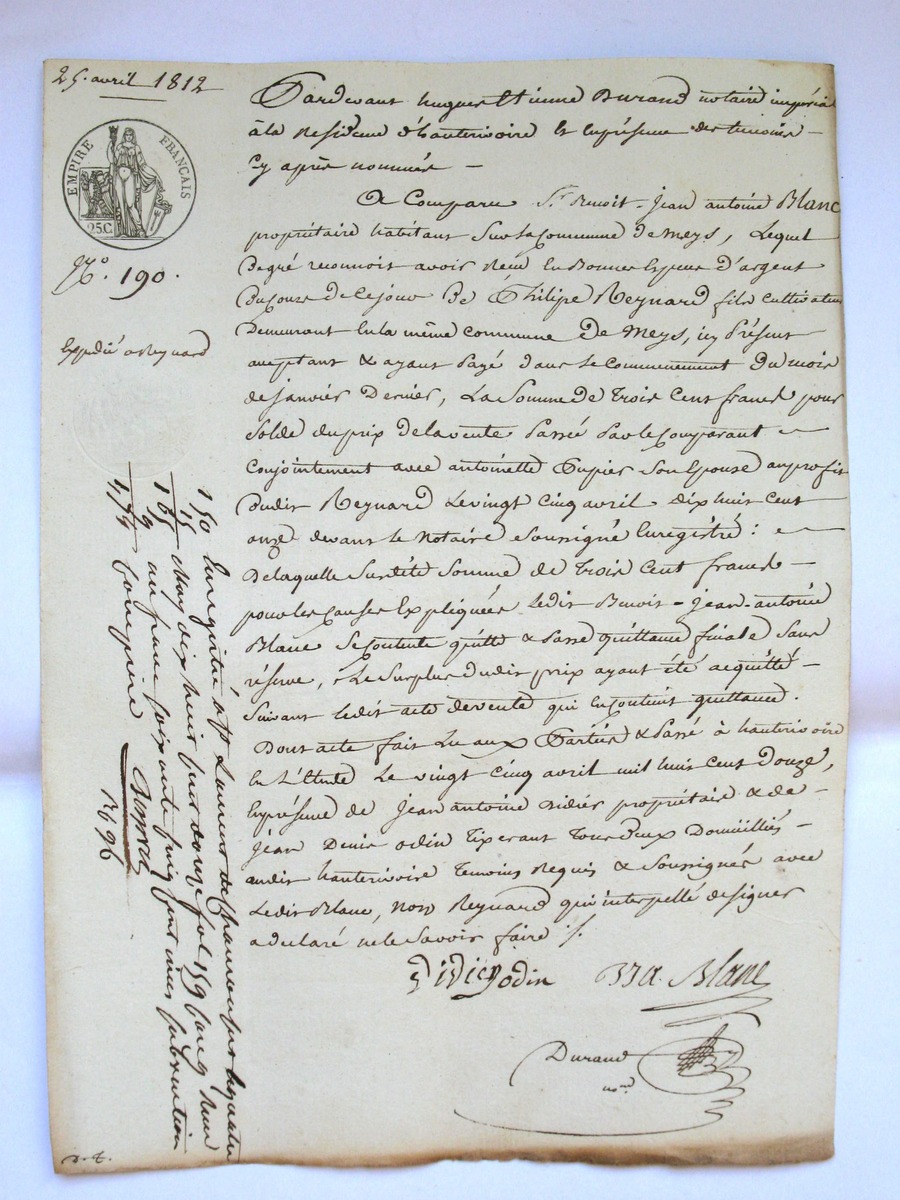 25. avril 1812
EMPIRE FRANÇAIS
25 C.
N.° 190.
Expédié a Reynard
Pardevant hugues Etienne Durand notaire impérial
à la Residence d'hauterivoire & en présence des temoins
Cy après nommés
A Comparu Sr. Benoit-Jean antoine Blanc
propriétaire habitant sur la Commune de Meys, Lequel
De gré reconnoit avoir Reçu En Bonnes Espèces d'argent
Du Cours de le jour De Philipe Reynard fils cultivateur
Demeurant En la même commune De Meys, icy Présent
acceptant & ayant Payé dans le Commencement Du mois
de janvier Dernier, La Somme De trois Cent francs pour
Solde du prix De la vente Passée Par le Comparant
Conjointement avec antoinette Pupier Son Epouse au profit
Dudit Reynard Le vingt Cinq avril Dix huit Cent
onze devant le Notaire Soussigné Enregistré :
De laquelle Susdite Somme de Trois Cent francs
pour les Causes Expliquées Ledit Benoit-Jean-antoine
Blanc Se Contente quitte & Passe Quittance finale Sans
réserve, Le Surplus dudit prix ayant été acquitté
Suivant ledit acte de vente qui En Contient quittance.
Dont acte fait Lu aux Parties & Passé à hauterivoire
En L'Etude Le vingt Cinq avril mil huit Cent Douze,
En présence de Jean antoine Didier propriétaire & de
Jean Denis odin Tixerant Tous Deux Domiciliés
audit hauterivoire Temoins Requis & Soussignés avec
Ledit Blanc, Non Reynard qui interpellé de signer
a déclaré ne le Savoir faire ./.
Didier odin Blanc
Durand
no.re
1 50
15
1 65
Enregistré à St Laurent de Chamousset le quatre
May dix huit cent douze fol 159 Case neuf
un franc soixante cinq cent avec subvention